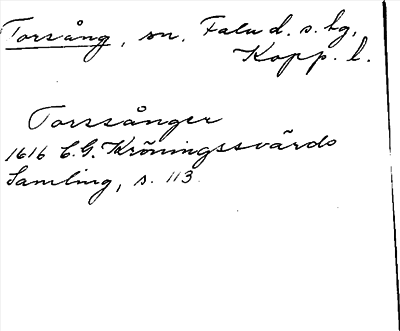 Torsång, sn. Falu d. s. tg,
Kopp. l.
Torssånger
1616 C.G. Kröningssvärds
Samling, s. 113.